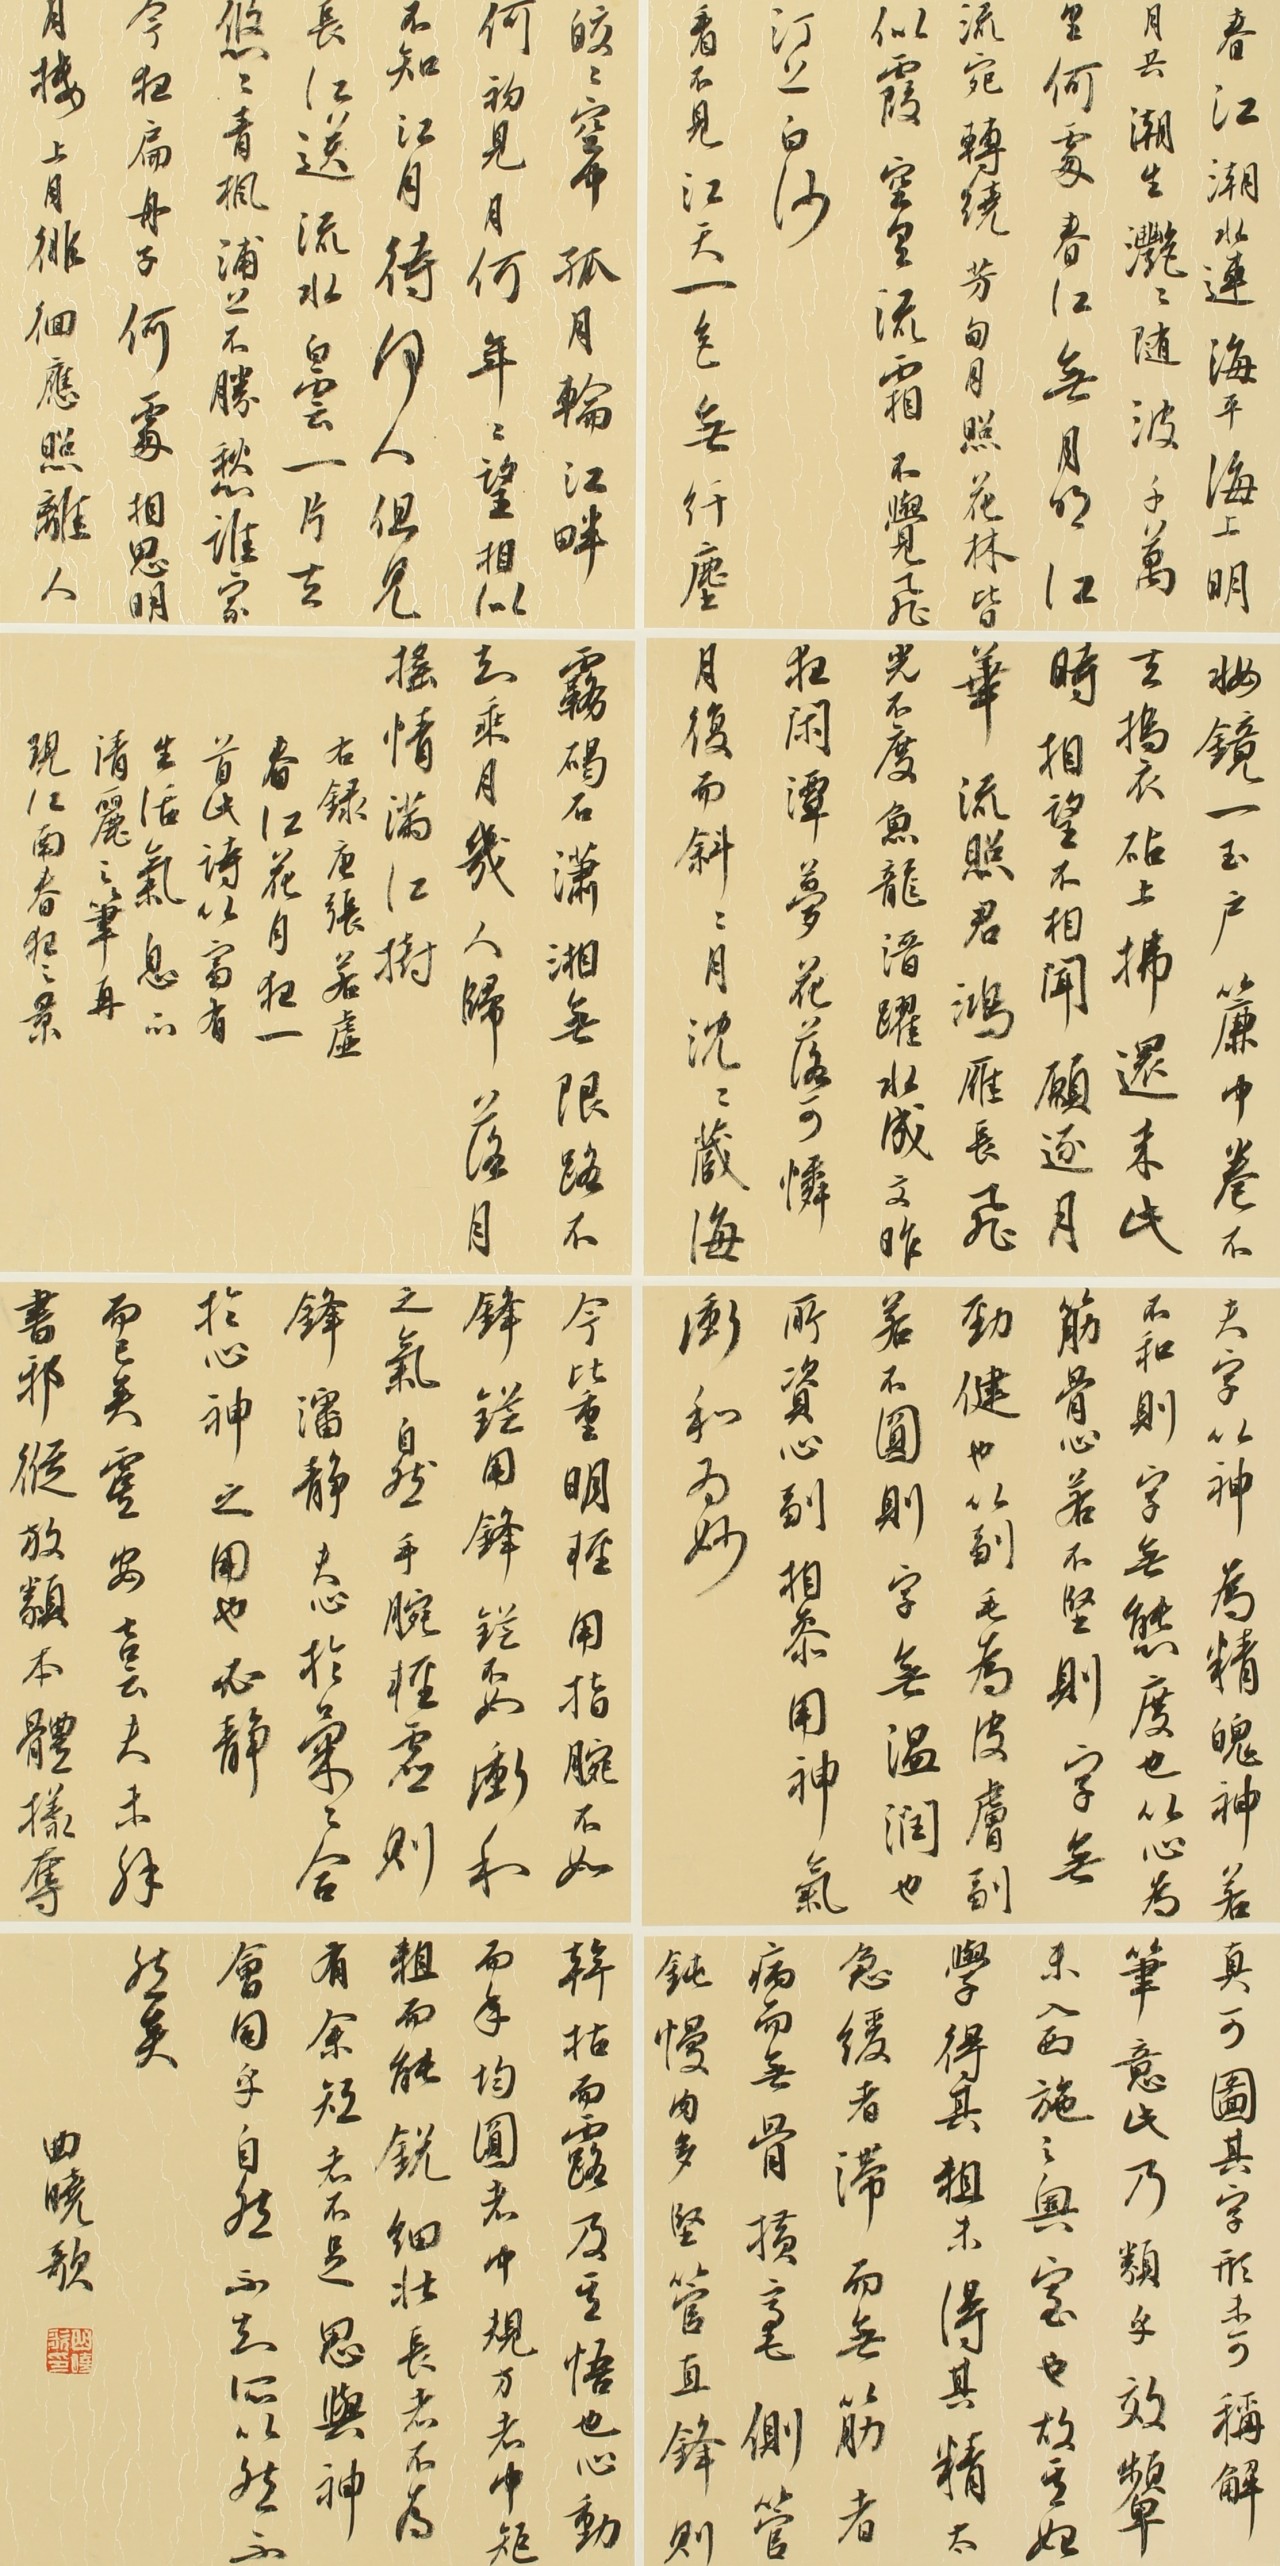 春江潮水連海平海上明
月共潮生灩〻随波千萬
里何處春江無月明江
流宛轉繞芳甸月照花林皆
似霞空里流霜不覺飛
汀上白沙
看不見江天一色無纤塵
皎〻空中孤月輪江畔
何初見月何年〻望相似
不知江月待何人但見
長江送流水白雲一片去
悠〻青楓浦上不勝愁誰家
今夜扁舟子何處相思明
月樓上月徘徊應照離人
妝鏡一玉户簾中卷不
去搗衣砧上拂還来此
時相望不相聞願逐月
華流照君鴻雁長飛
光不度魚龍潛躍水成文昨
夜闲潭夢花落可憐
月復而斜〻月沈〻藏海
霧碣石瀟湘無限路不
知乘月幾人歸落月
摇情滿江樹
右録唐張若虛
春江花月夜一
首此詩以富有
生活氣息而
清麗之筆再
現江南春夜之景
夫字以神為精魄神若
不和則字無態度也以心為
筋骨心若不堅則字無
勁健也以副毛為皮膚副
若不圓則字無温潤也
所資心副相參用神氣
衝和為妙
今比重明輕用指腕不如
鋒鋩用鋒鋩不如衝和
之氣自然手腕輕虛則
鋒瀋静夫心於氣〻合
於心神之用也必静
而已矣虞安吉云夫未解
書邪縱放類本體樣奪
真可圖其字形未可稱解
筆意此乃類乎效顰
未入西施之奥室也故其始
學得其粗未得其精太
急緩者滯而無筋者
病而無骨横毫側管
鈍慢肉多堅管直鋒則
幹枯而露及其悟也心動
而手均圓者中規方者中矩
粗而能鋭細壮長者不為
有余短者不足思與神
會同乎自然不知所以然而
然矣
曲曉歌